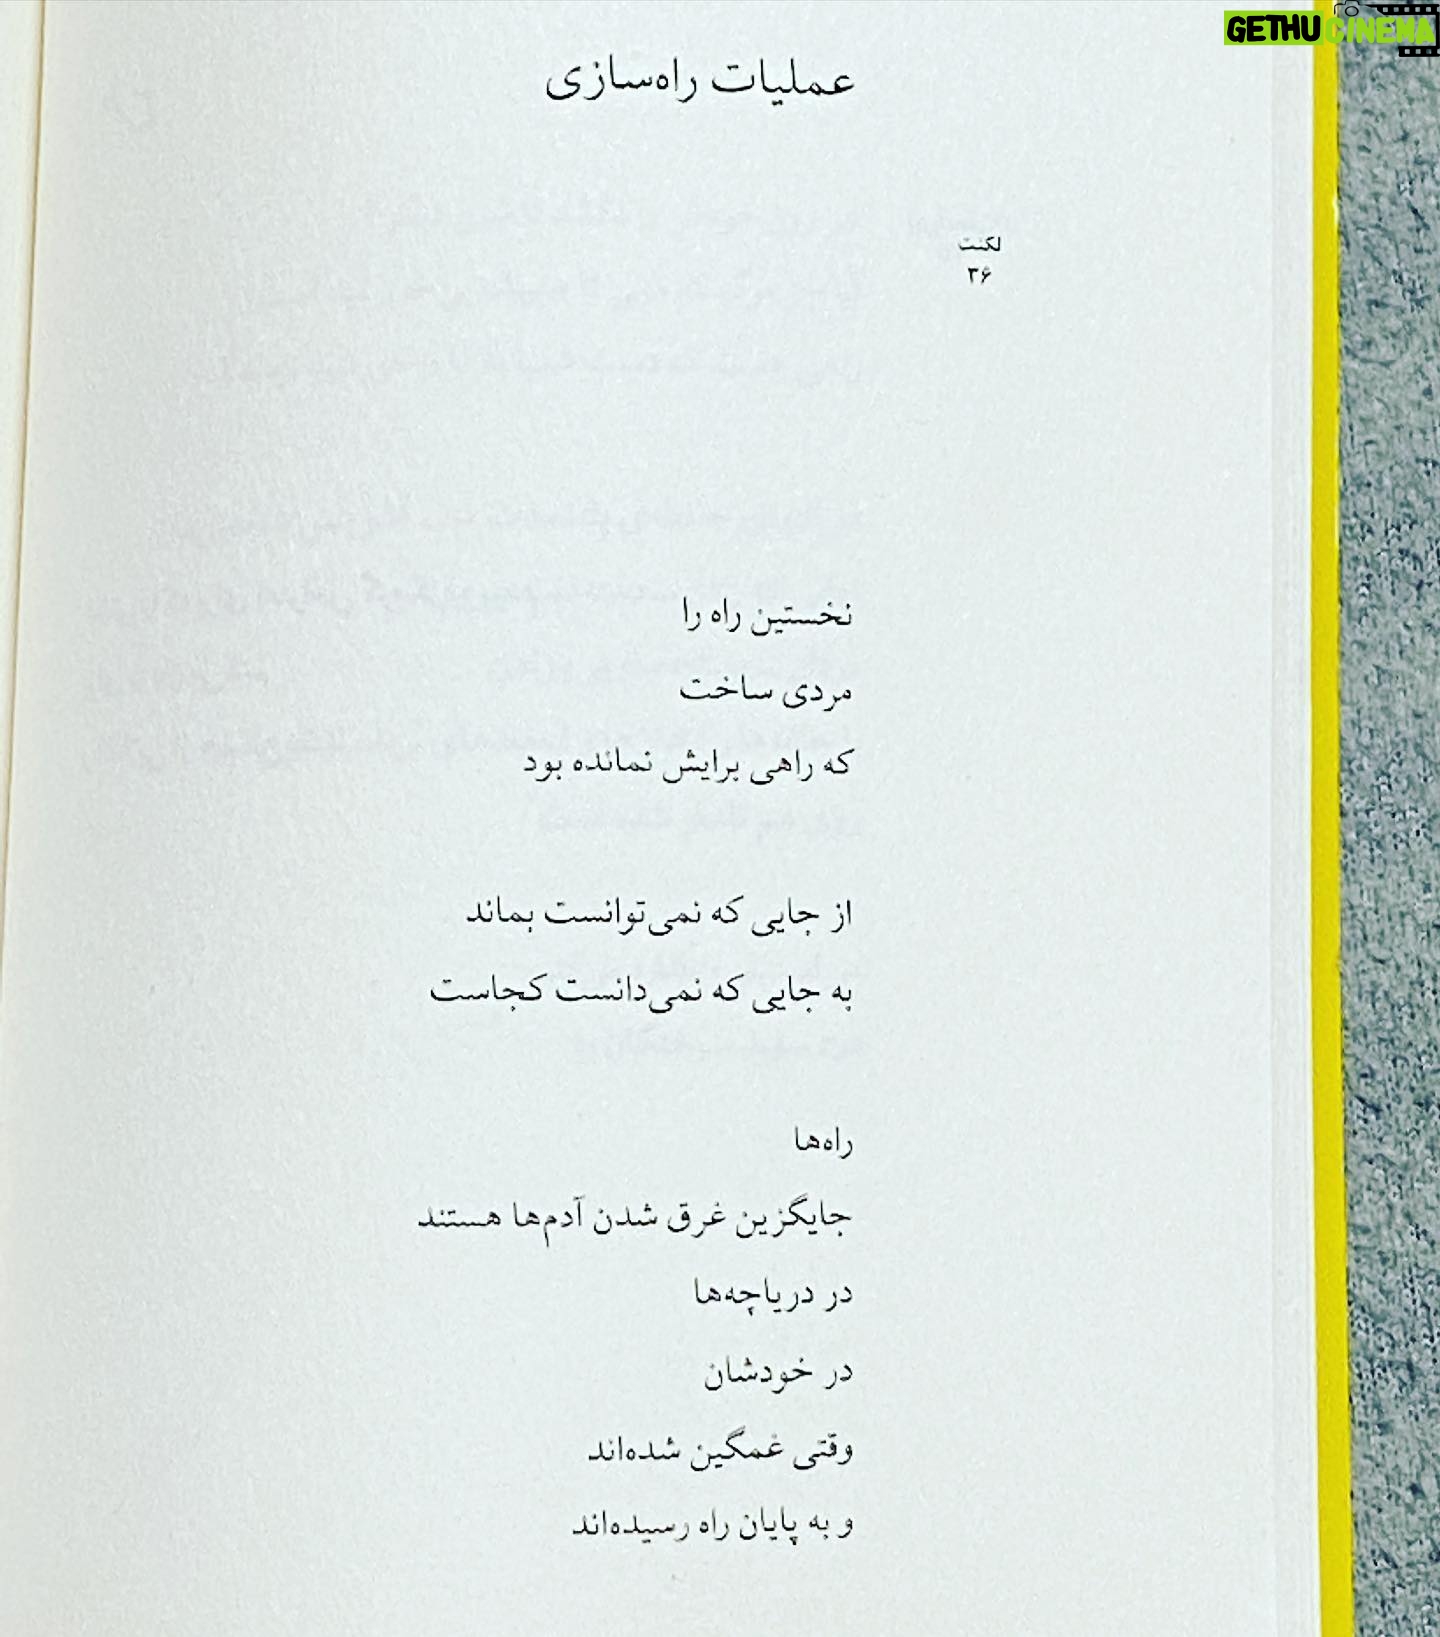 GETHU CINEMA
عملیات راه‌سازی
لکنت
۳۶
نخستین راه را
مردی ساخت
که راهی برایش نمانده بود
از جایی که نمی‌توانست بماند
به جایی که نمی‌دانست کجاست
راه‌ها
جایگزین غرق شدن آدم‌ها هستند
در دریاچه‌ها
در خودشان
وقتی غمگین شده‌اند
و به پایان راه رسیده‌اند